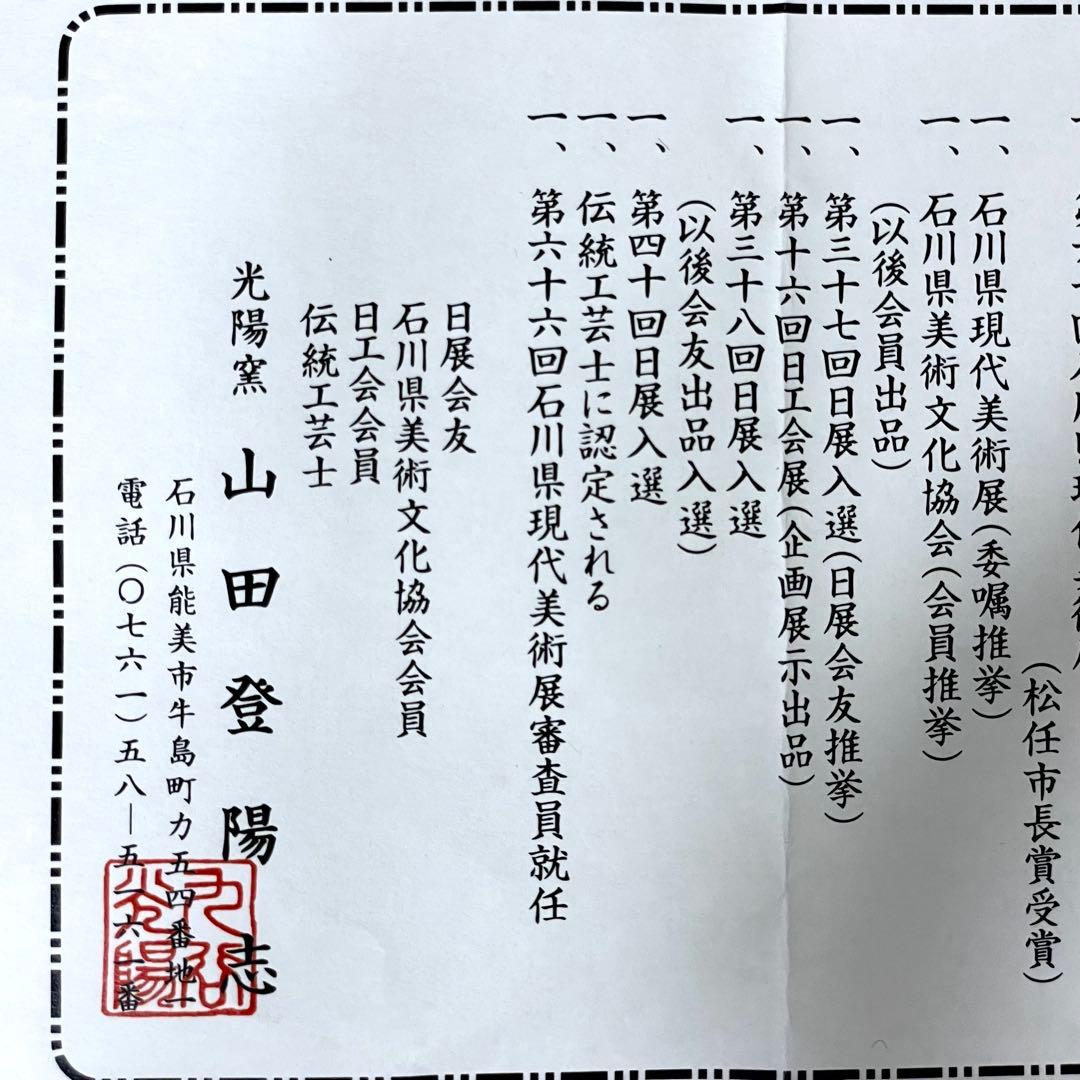 (松任市長賞受賞)
一、石川県現代美術展(委嘱推挙)
一、石川県美術文化協会(会員推挙)
(以後会員出品)
一、第三十七回日展入選(日展会友推挙)
一、第十六回日工会展(企画展示出品)
一、第三十八回日展入選
(以後会友出品入選)
一、第四十回日展入選
一、伝統工芸士に認定される
一、第六十六回石川県現代美術展審査員就任
日展会友
石川県美術文化協会会員
日工会会員
伝統工芸士
光陽窯 山田登陽志
石川県能美市牛島町カ五四番地一
電話(〇七六一)五八―五一六一番